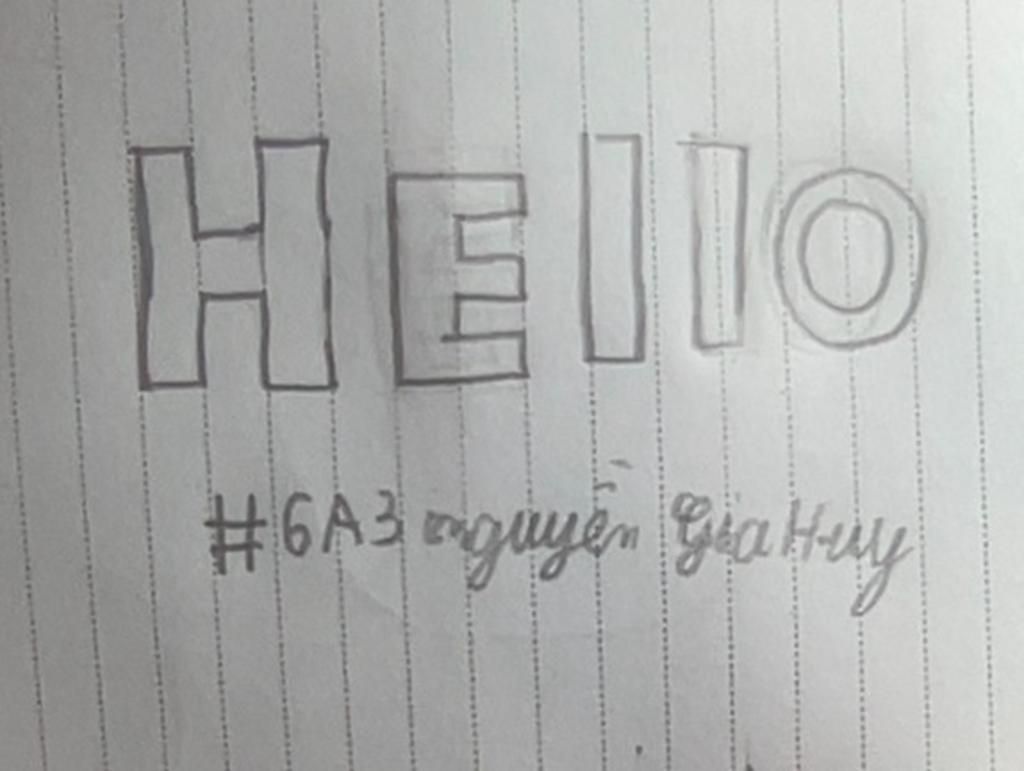 Hello
#6A3 nguyễn Gia Huy